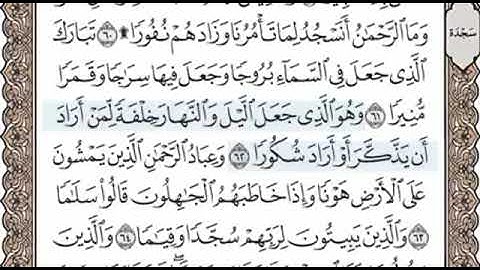 وَمَا ٱلرَّحْمَٰنُ أَنَسْجُدُ لِمَا تَأْمُرُنَا وَزَادَهُمْ نُفُورًا ۩ ٦٠ تَبَارَكَ
سَجْدَة
ٱلَّذِى جَعَلَ فِى ٱلسَّمَآءِ بُرُوجًا وَجَعَلَ فِيهَا سِرَٰجًا وَقَمَرًا
مُّنِيرًا ٦١ وَهُوَ ٱلَّذِى جَعَلَ ٱلَّيْلَ وَٱلنَّهَارَ خِلْفَةً لِّمَنْ أَرَادَ
أَن يَذَّكَّرَ أَوْ أَرَادَ شُكُورًا ٦٢ وَعِبَادُ ٱلرَّحْمَٰنِ ٱلَّذِينَ يَمْشُونَ
عَلَى ٱلْأَرْضِ هَوْنًا وَإِذَا خَاطَبَهُمُ ٱلْجَٰهِلُونَ قَالُوا۟ سَلَٰمًا
٦٣ وَٱلَّذِينَ يَبِيتُونَ لِرَبِّهِمْ سُجَّدًا وَقِيَٰمًا ٦٤ وَٱلَّذِينَ